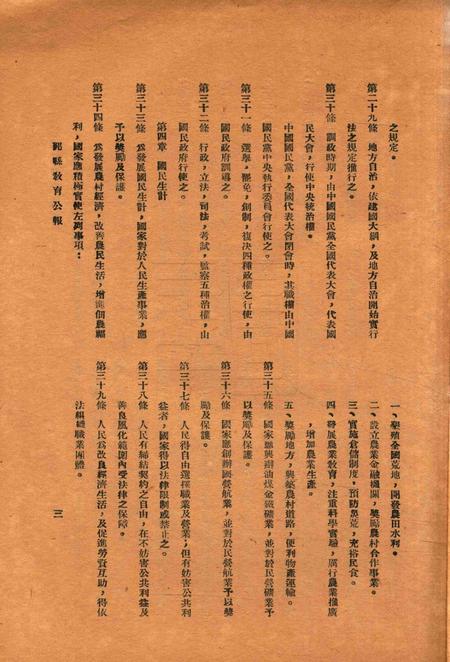 之規定。
第二十九條　地方自治，依建國大綱，及地方自治開始實行
法之規定推行之。
第三十條　訓政時期，由中國國民黨全國代表大會，代表國
民大會，行使中央統治權。
中國國民黨，全國代表大會閉會時，其職權由中國
國民黨中央執行委員會行使之。
第三十一條　選舉，罷免，創制，復決四種政權之行使，由
國民政府訓導之。
第三十二條　行政，立法，司法，考試，監察五種治權，由
國民政府行使之。
第四章　國民生計
第三十三條　為發展國民生計，國家對於人民生產事業，應
予以獎勵及保護。
第三十四條　為發展農村經濟，改善農民生活，增進佃農福
利，國家應積極實使左列事項：
縣教育公報
一、墾殖全國荒地，開發農田水利。
二、設立農業金融機關，獎勵農村合作事業。
三、實施倉儲制度，預防災荒，充裕民食。
四、發展農業教育，注重科學實驗，厲行農業推廣
，增加農業生產。
五、獎勵地方，興築農村道路，便利物產運輸。
第三十五條　國家應興辦油煤金鐵礦業，並對於民營礦業予
以獎勵及保護。
第三十六條　國家應創辦國營航業，並對於民營航業予以獎
勵及保護。
第三十七條　人民得自由選擇職業及營業，但有妨害公共利
益者，國家得以法律限制或禁止之。
第三十八條　人民有締結契約之自由，在不妨害公共利益及
善良風化範圍內受法律之保障。
第三十九條　人民為改良經濟生活，及促進勞資互助，得依
法組織職業團體。
三